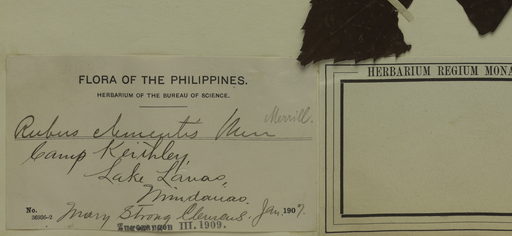 FLORA OF THE PHILIPPINES.
HERBARIUM OF THE BUREAU OF SCIENCE.
Merrill.
Rubus clementis Merr
Camp Keithley,
Lake Lanao,
Mindanao.
No. Mary Strong Clemens. Jan. 1907.
III. 1909.
HERBARIUM REGIUM MONA